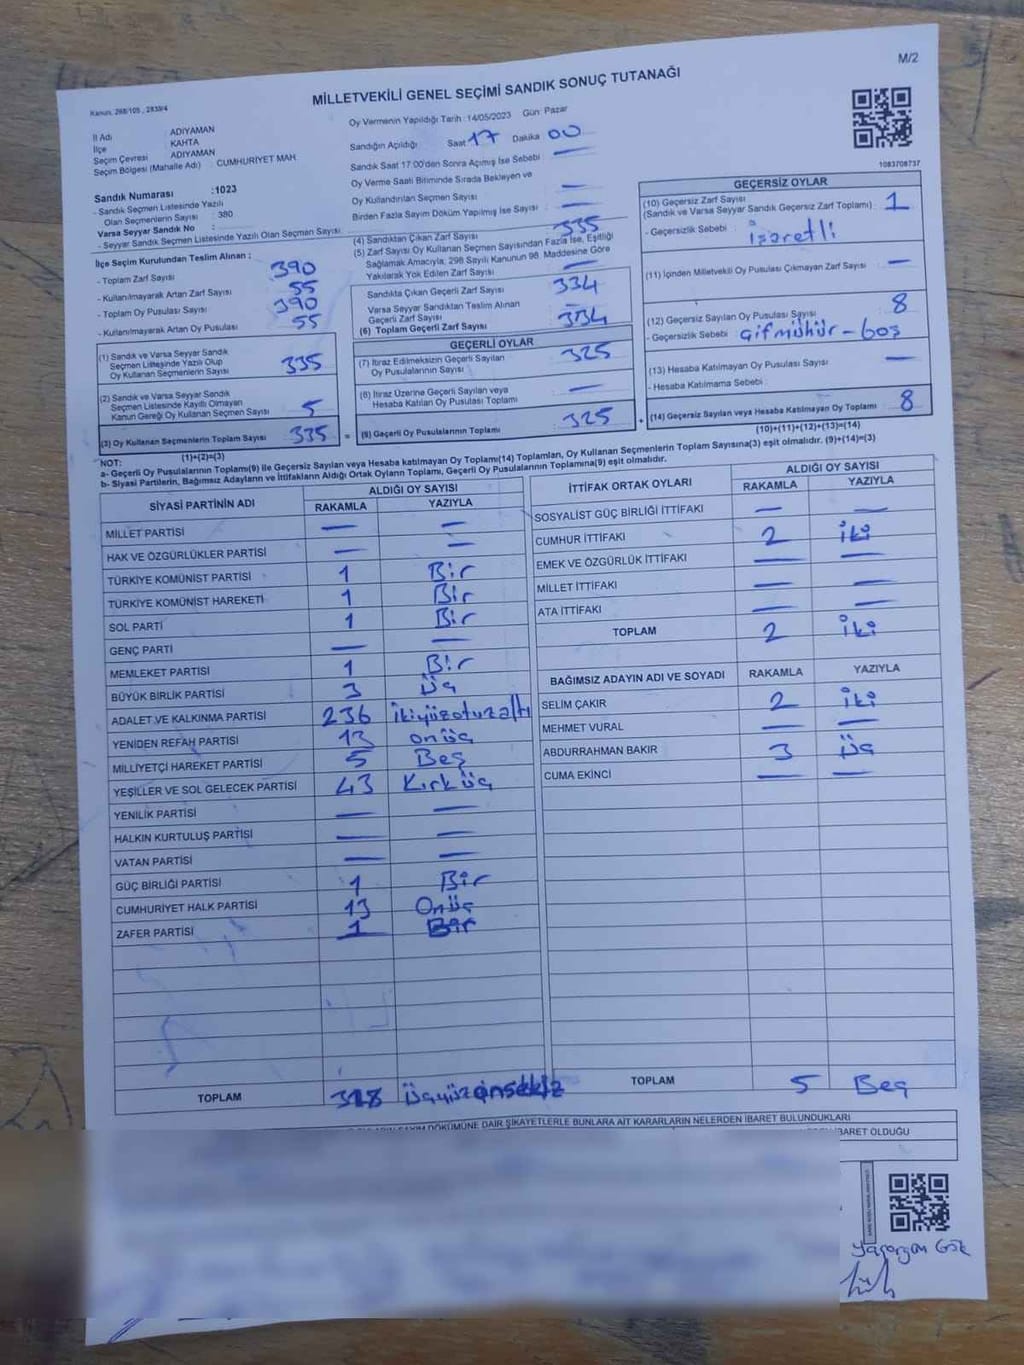 M/2
Kanun: 298/105 , 2839/4
MİLLETVEKİLİ GENEL SEÇİMİ SANDIK SONUÇ TUTANAĞI
İl Adı : ADIYAMAN
İlçe : KAHTA
Seçim Çevresi : ADIYAMAN
Seçim Bölgesi (Mahalle Adı) : CUMHURIYET MAH
Sandık Numarası :1023
- Sandık Seçmen Listesinde Yazılı
Olan Seçmenlerin Sayısı : 380
Varsa Seyyar Sandık No :
- Seyyar Sandık Seçmen Listesinde Yazılı Olan Seçmen Sayısı :
İlçe Seçim Kurulundan Teslim Alınan ;
- Toplam Zarf Sayısı : 390
- Kullanılmayarak Artan Zarf Sayısı : 55
- Toplam Oy Pusulası Sayısı : 390
- Kullanılmayarak Artan Oy Pusulası : 55
(1) Sandık ve Varsa Seyyar Sandık
Seçmen Listesinde Yazılı Olup
Oy Kullanan Seçmenlerin Sayısı 335
(2) Sandık ve Varsa Seyyar Sandık
Seçmen Listesinde Kayıtlı Olmayan
Kanun Gereği Oy Kullanan Seçmen Sayısı 5
(3) Oy Kullanan Seçmenlerin Toplam Sayısı 335
(1)+(2)=(3)
Oy Vermenin Yapıldığı Tarih : 14/05/2023 Gün: Pazar
Sandığın Açıldığı Saat 17 Dakika 00
Sandık Saat 17:00'den Sonra Açılmış İse Sebebi —
Oy Verme Saati Bitiminde Sırada Bekleyen ve
Oy Kullandırılan Seçmen Sayısı —
Birden Fazla Sayım Döküm Yapılmış İse Sayısı : —
(4) Sandıktan Çıkan Zarf Sayısı 335
(5) Zarf Sayısı Oy Kullanan Seçmen Sayısından Fazla İse, Eşitliği
Sağlamak Amacıyla, 298 Sayılı Kanunun 98. Maddesine Göre
Yakılarak Yok Edilen Zarf Sayısı —
Sandıkta Çıkan Geçerli Zarf Sayısı 334
Varsa Seyyar Sandıktan Teslim Alınan
Geçerli Zarf Sayısı —
(6) Toplam Geçerli Zarf Sayısı 334
GEÇERLİ OYLAR
(7) İtiraz Edilmeksizin Geçerli Sayılan
Oy Pusulalarının Sayısı 325
(8) İtiraz Üzerine Geçerli Sayılan veya
Hesaba Katılan Oy Pusulası Toplamı —
(9) Geçerli Oy Pusulalarının Toplamı 325
1083708737
GEÇERSİZ OYLAR
(10) Geçersiz Zarf Sayısı
(Sandık ve Varsa Seyyar Sandık Geçersiz Zarf Toplamı) : 1
- Geçersizlik Sebebi : işaretli
(11) İçinden Milletvekili Oy Pusulası Çıkmayan Zarf Sayısı : —
(12) Geçersiz Sayılan Oy Pusulası Sayısı : 8
- Geçersizlik Sebebi : çifmühür – boş
(13) Hesaba Katılmayan Oy Pusulası Sayısı : —
- Hesaba Katılmama Sebebi :
(14) Geçersiz Sayılan veya Hesaba Katılmayan Oy Toplamı 8
(10)+(11)+(12)+(13)=(14)
NOT:
a- Geçerli Oy Pusulalarının Toplamı(9) ile Geçersiz Sayılan veya Hesaba katılmayan Oy Toplamı(14) Toplamları, Oy Kullanan Seçmenlerin Toplam Sayısına(3) eşit olmalıdır. (9)+(14)=(3)
b- Siyasi Partilerin, Bağımsız Adayların ve İttifakların Aldığı Ortak Oyların Toplamı, Geçerli Oy Pusulalarının Toplamına(9) eşit olmalıdır.
SİYASİ PARTİNİN ADI ALDIĞI OY SAYISI
RAKAMLA YAZIYLA
MİLLET PARTİSİ — —
HAK VE ÖZGÜRLÜKLER PARTİSİ — —
TÜRKİYE KOMÜNİST PARTİSİ 1 Bir
TÜRKİYE KOMÜNİST HAREKETİ 1 Bir
SOL PARTİ 1 Bir
GENÇ PARTİ — —
MEMLEKET PARTİSİ 1 Bir
BÜYÜK BİRLİK PARTİSİ 3 üç
ADALET VE KALKINMA PARTİSİ 236 ikiyüzotuzaltı
YENİDEN REFAH PARTİSİ 13 onüç
MİLLİYETÇİ HAREKET PARTİSİ 5 Beş
YEŞİLLER VE SOL GELECEK PARTİSİ 43 Kırküç
YENİLİK PARTİSİ — —
HALKIN KURTULUŞ PARTİSİ — —
VATAN PARTİSİ — —
GÜÇ BİRLİĞİ PARTİSİ 1 Bir
CUMHURİYET HALK PARTİSİ 13 Onüç
ZAFER PARTİSİ 1 Bir
TOPLAM 318 üçyüzonsekiz
İTTİFAK ORTAK OYLARI ALDIĞI OY SAYISI
RAKAMLA YAZIYLA
SOSYALİST GÜÇ BİRLİĞİ İTTİFAKI — —
CUMHUR İTTİFAKI 2 iki
EMEK VE ÖZGÜRLÜK İTTİFAKI — —
MİLLET İTTİFAKI — —
ATA İTTİFAKI — —
TOPLAM 2 iki
BAĞIMSIZ ADAYIN ADI VE SOYADI RAKAMLA YAZIYLA
SELİM ÇAKIR 2 iki
MEHMET VURAL — —
ABDURRAHMAN BAKIR 3 üç
CUMA EKİNCİ — —
TOPLAM 5 Beş
DÖKÜMÜNE DAİR ŞİKAYETLERLE BUNLARA AİT KARARLARIN NELERDEN İBARET BULUNDUKLARI
İBARET OLDUĞU